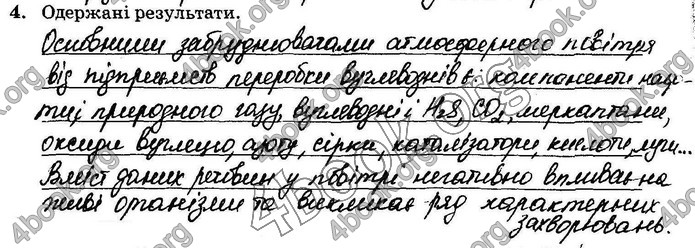 4. Одержані результати.
Основними забруднювачами атмосферного повітря
від підприємств переробки вуглеводнів є: компоненти наф-
ти і природного газу, вуглеводні і H₂S, CO₂, меркаптани,
оксиди вуглецю, азоту, сірки, каталізатори, кислоти, луги...
Вміст даних речовин у повітрі негативно впливає на
живі організми та викликає ряд характерних
захворювань.
4book.org